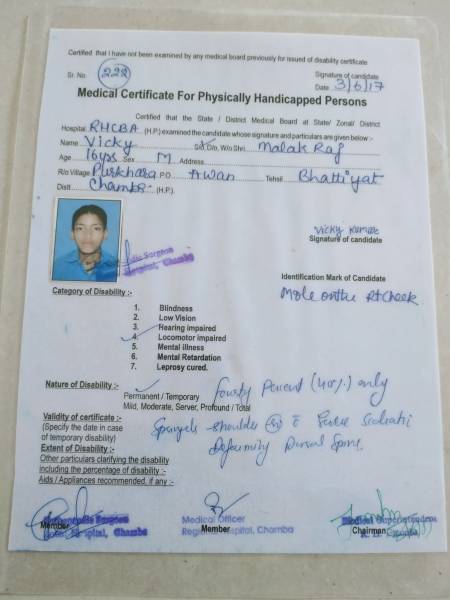 Certified that I have not been examined by any medical board previously for issued of disability certificate
Sr. No. 222
Signature of candidate
Date 3/6/17
Medical Certificate For Physically Handicapped Persons
Certified that the State / District Medical Board at State/ Zonal/ District
Hospital RHCBA (H.P.) examined the candidate whose signature and particulars are given below :-
Name Vicky S/o, D/o, W/o Shri Malak Raj
Age 16yrs Sex M Address
R/o Village Purkhara P.O. Awan Tehsil Bhattiyat
Distt Chamba (H.P.).
Vicky Kumar
Signature of candidate
Hospital, Chamba
Identification Mark of Candidate
Mole on the Rt Cheek
Category of Disability :-
1. Blindness
2. Low Vision
3. Hearing impaired
4. Locomotor impaired
5. Mental illness
6. Mental Retardation
7. Leprosy cured.
Nature of Disability :-
Permanent / Temporary
fourty percent (40%) only
Mild, Moderate, Server, Profound / Total
Validity of certificate :-
(Specify the date in case
of temporary disability)
shoulder
Deformity Dorsal Spine
Extent of Disability :-
Other particulars clarifying the disability
including the percentage of disability :-
Aids / Appliances recommended, if any :-
Member
Hospital, Chamba
Medical Officer
Member
Hospital, Chamba
Medical Superintendent
Chairman